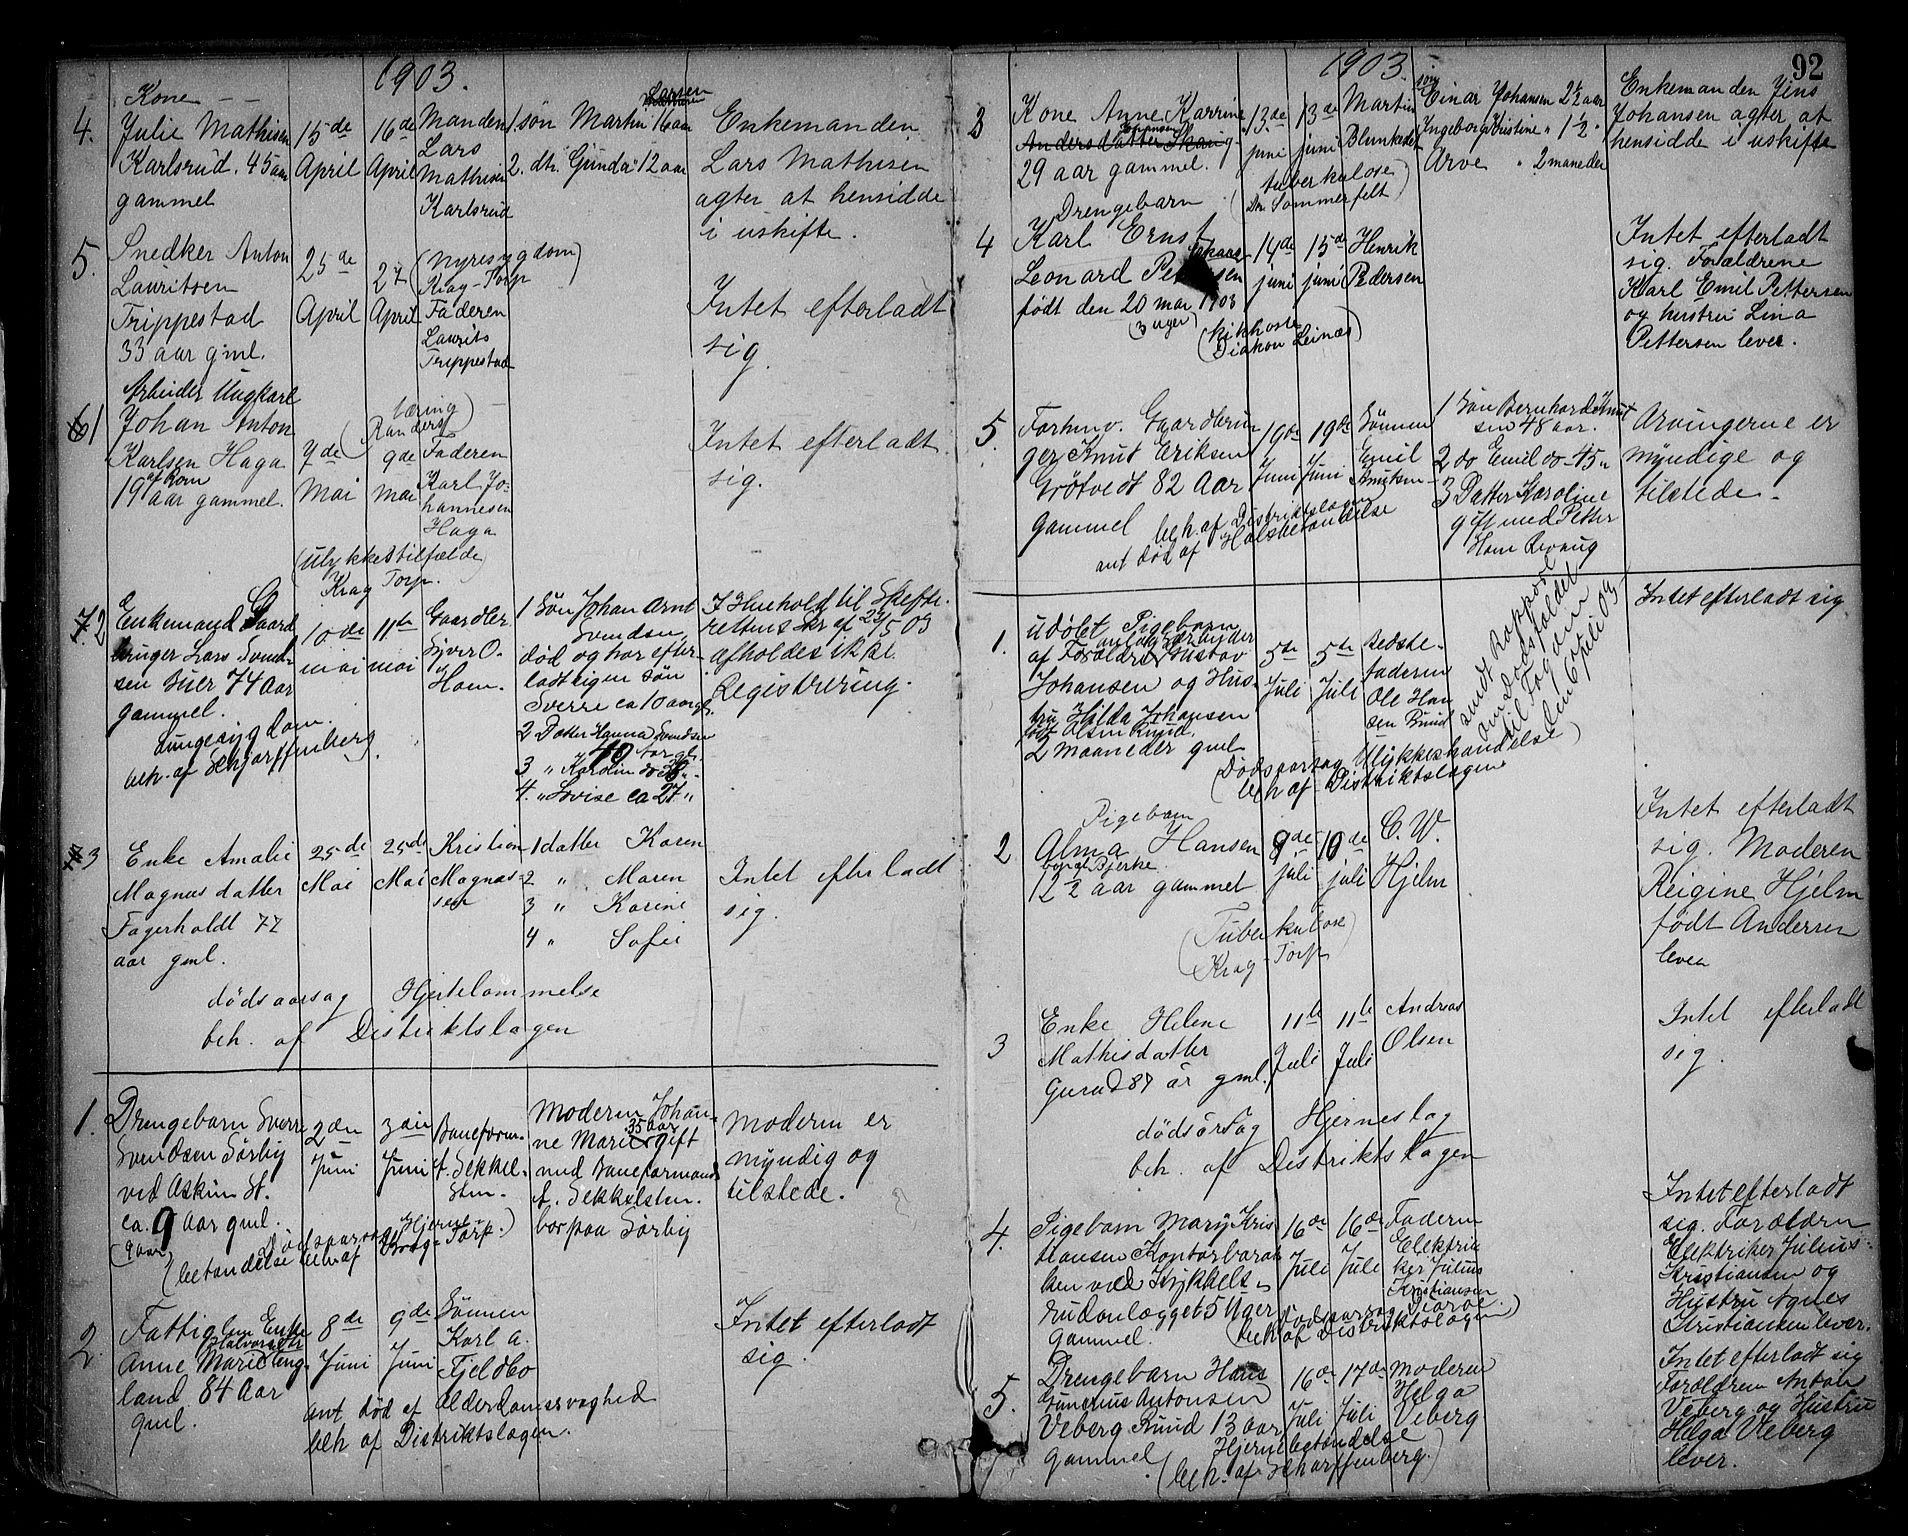 1903.
Kone
4. Julie Mathisen
Karlsrud. 45 aar
gammel
15de
April
16de
April
Manden
Lars
Mathisen
Karlsrud
Larsen
1. søn Martin 16 aar
2. dtr. Gunda 12 aar
Enkemanden
Lars Mathisen
agter at hensidde
i uskifte.
5. Snedker Anton
Lauritsen
Trippestad
33 aar gml.
25de
April
27
April
(Nyresygdom)
Krag-Torp
Faderen
Laurits
Trippestad
Intet efterladt
sig.
Arbeider Ungkarl
1 Johan Anton
Karlsen Haga
af Rom
19 aar gammel.
7de
Mai
9de
mai
(tæring)
Randers
Faderen
Karl Jo-
hannesen
Haga
Intet efterladt
sig.
(ulykkestilfælde)
Krag Torp.
2 Enkemand Gaard
bruger Lars Svend-
sen Suer 74 Aar
gammel.
Lungesygdom.
beh. af Scharffenberg.
10de
mai
11te
mai
Gaardbr
Syver O.
Hom.
1 Søn Johan Arnt
Svendsen
død og har efter-
ladt sigen søn
Sverre ca 10 aargl.
2 Datter Hanna Svendsen
40 aargl.
3 " Karolin do
4. " Lovise ca 27 "
I Huehold til Skifte-
rettens skr af 23/5 03
afholdes ikke
Registrering.
3 Enke Amalie
Magnasdatter
Fagerholdt 77
aar gml.
25de
Mai
25de
Mai
Kristian
Magnas-
sen
1 datter Karen
2 " Maren
3 " Karine
4 " Sofie
Intet efterladt
sig.
dødsaarsag Hjertelammelse
beh. af Distriktslægen
1. Drengebarn Sverre
Svendsen Sørby
ved Askim St.
ca. 9 aar gml.
(9 aar)
2den
Juni
3die
Juni
Baneform.
A. Sekkel-
sten.
Moderen Johan-
35 aar
ne Marie gift
med Baneformand
A. Sekkelsten.
bor paa Sørby
Moderen er
myndig og
tilstede.
Dødsaarsag Hjerne-
(betændelse beh af Krag-Torp.)
2. Fattiglem Enke
Halvorsdtr
Anne Marie Eng-
land 84 Aar
gml.
8de
Juni
9de
Juni
Sønnen
Karl A.
Fjeldbo
Intet efterladt
sig.
ant død af Alderdomssvaghed
beh af Distriktslægen.
1903.
92
3 Kone Anne Karrine
29 aar gammel.
13de
juni
13de
juni
Martin
Blunkedal
tuberkulose
(Dr. Sommerfelt)
søn Einar Johansen 2 1/2 aar
Ingeborg Kristine " 1 1/2 "
Arve " 2 maaneder
Enkemanden Jens
Johansen agter at
hensidde i uskifte
Drengebarn
4 Karl Ernst
Leonard Pettersen
født den 20 mai 1903
(3 uger)
14de
juni
15de
juni
Henrik
Pedersen
(kikhoste
Diakon Leinæs)
Intet efterladt
sig. Forældrene
Karl Emil Pettersen
og hustru Lina
Pettersen lever.
5. Forhenv. Gaardbru-
ger Knut Eriksen
Grøtvedt 82 Aar
gammel
19de
Juni
19de
Juni
Sønnen
Emil
Knutsen
beh. af Distriktslægen
ant død af Halsbetændelse
1 Søn Bernhard Knut
sen 48 aar.
2 do Emil do 45 "
3 Datter Karoline
gift med Petter
Hom Revaug
Arvingerne er
myndige og
tilstede.
1. udøbt Pigebarn
anlægsarbeider
af Forældre Gustav
Johansen og Hus-
tru Hilda Johansen
født Olsen Rund.
2 maaneder gml
5te
Juli
5te
Juli
Bedste-
faderen
Ole Han
sen Rund
sendt Rapport
om Dødsfaldet
til Fogden
den 6te Juli 03
(Dødsaarsag Ulykkeshændelse)
beh af Distriktslægen
Intet efterladt sig
Pigebarn
2 Alma Hansen
boende Bjerke
12 1/2 aar gammel
9de
juli
10de
juli
C. W.
Hjelm
(Tuberkulose)
Krag-Torp
Intet efterladt
sig. Moderen
Reigine Hjelm
født Andersen
lever
3 Enke Helene
Mathisdatter
Gurud 87 år gml.
11te
Juli
11te
Juli
Andreas
Olsen
Intet efterladt
sig.
dødsårsag Hjerneslag
beh. af Distriktslægen
4. Pigebarn Mary Kris
tiansen Kontorbarak
ken ved Kykkels-
rudanlægget 5 Uger
gammel.
16de
Juli
16de
Juli
Faderen
Elektri
ker Julius
Kristiansen
(Dødsaarsag Diaroe.
beh af Distriktslægen)
Intet efterladt
sig. Forældren
Elektriker Julius
Kristiansen og
Hustru Agnes
Kristiansen lever.
5. Drengebarn Hans
Gunerius Antonsen
Veberg Rund 13 aar
gammel
16de
Juli
17de
Juli
Moderen
Helga
Veberg
Hjernebetændelse
(beh. af Scharffenberg.)
Intet efterladt sig
Forældren Anton
Veberg og Hustru
Helga Veberg
lever.